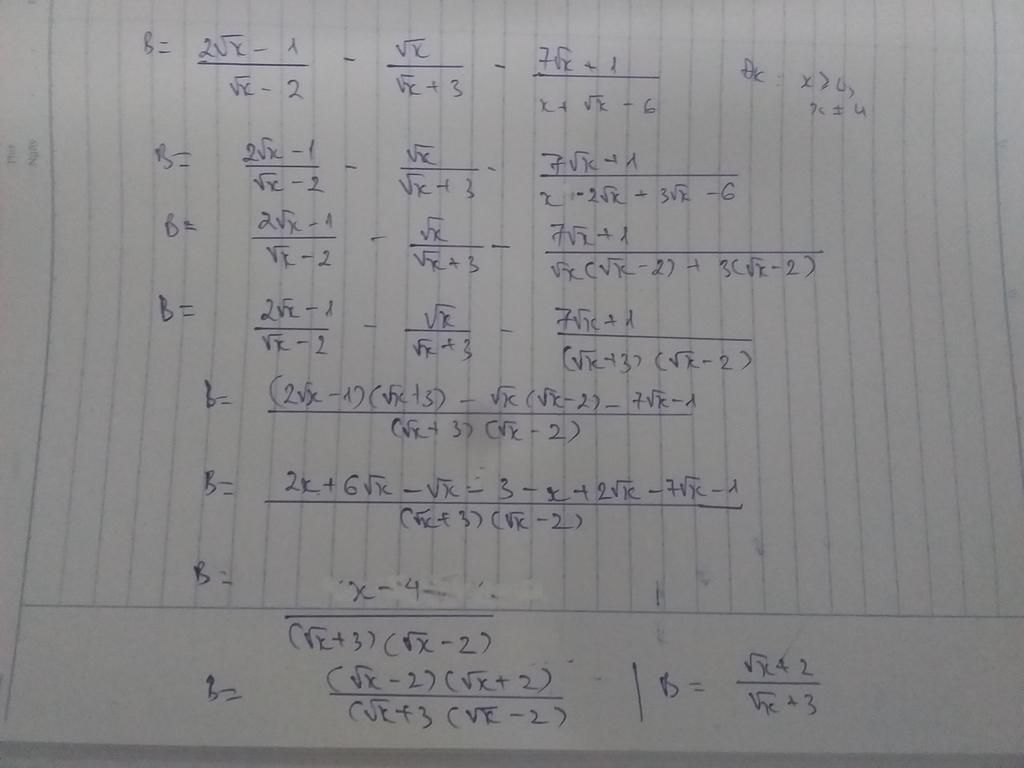 B = (2√x - 1)/(√x - 2) - √x/(√x + 3) - (7√x + 1)/(x + √x - 6) Đk: x ≥ 0, x ≠ 4
B = (2√x - 1)/(√x - 2) - √x/(√x + 3) - (7√x + 1)/(x - 2√x + 3√x - 6)
B = (2√x - 1)/(√x - 2) - √x/(√x + 3) - (7√x + 1)/(√x(√x - 2) + 3(√x - 2))
B = (2√x - 1)/(√x - 2) - √x/(√x + 3) - (7√x + 1)/((√x + 3)(√x - 2))
B = ((2√x - 1)(√x + 3) - √x(√x - 2) - 7√x - 1)/((√x + 3)(√x - 2))
B = (2x + 6√x - √x - 3 - x + 2√x - 7√x - 1)/((√x + 3)(√x - 2))
B = (x - 4)/((√x + 3)(√x - 2))
B = ((√x - 2)(√x + 2))/((√x + 3 (√x - 2)) | B = (√x + 2)/(√x + 3)